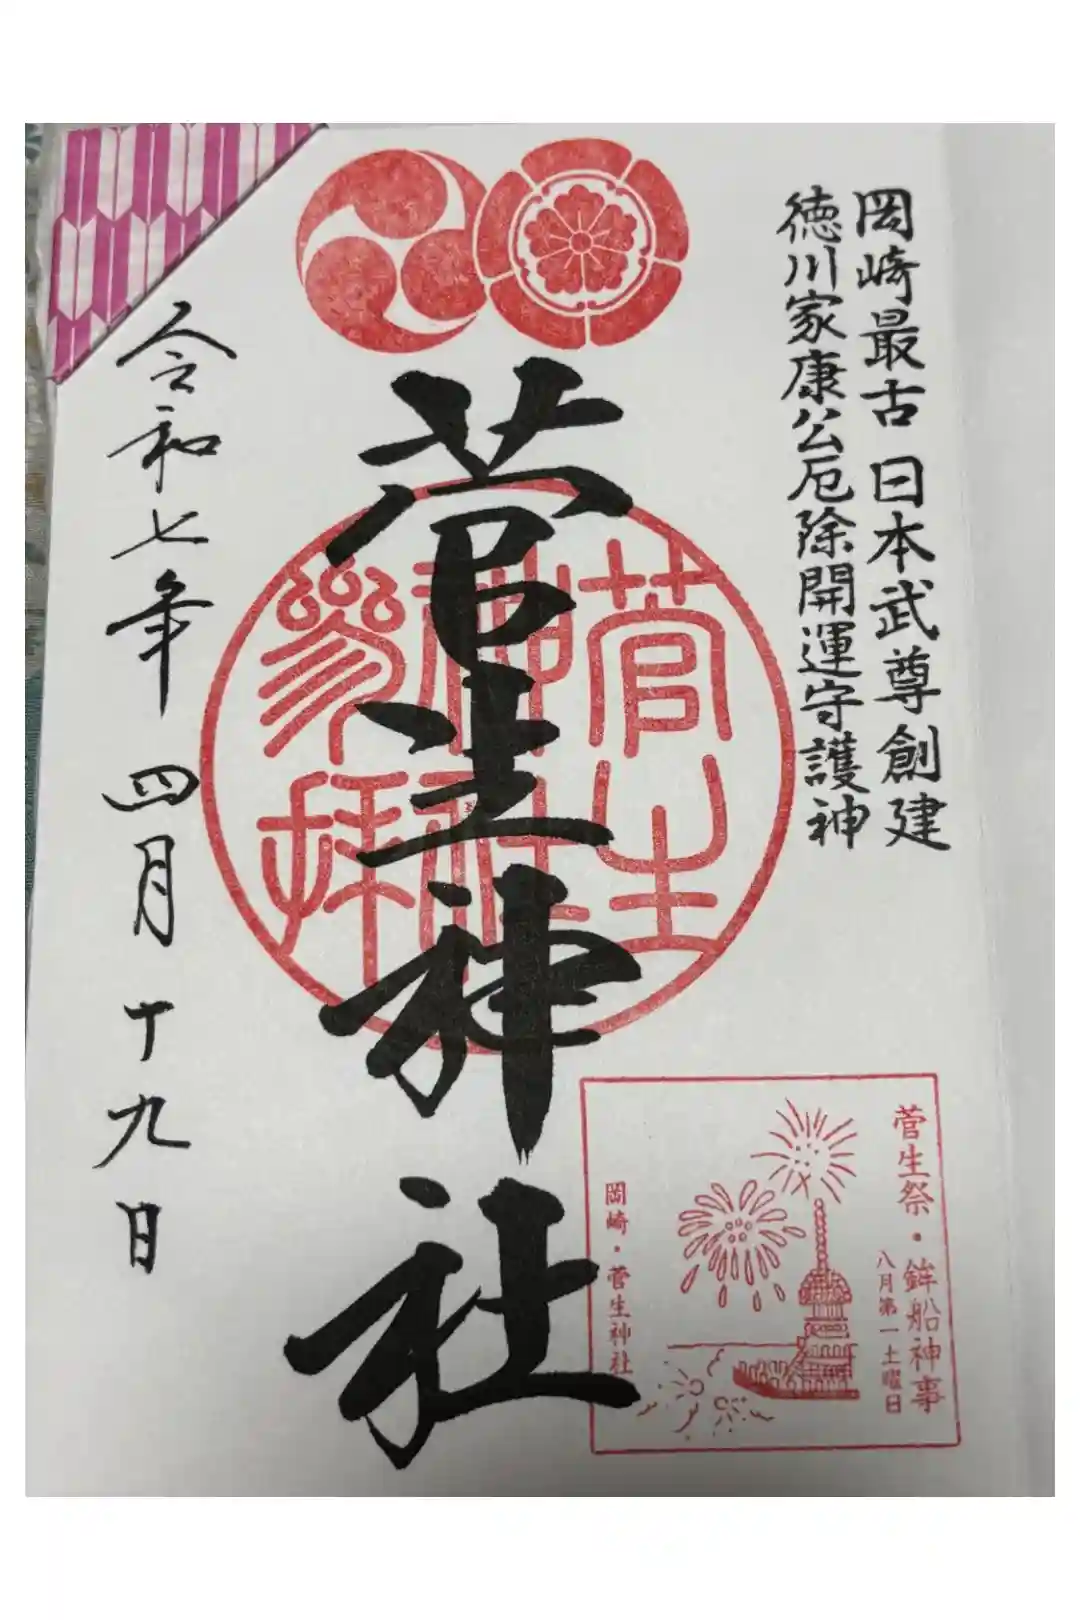 岡崎最古 日本武尊創建
徳川家康公厄除開運守護神
菅生神社
菅生
神社
參拝
令和七年 四月十九日
菅生祭・鉾船神事
八月第一土曜日
岡崎・菅生神社